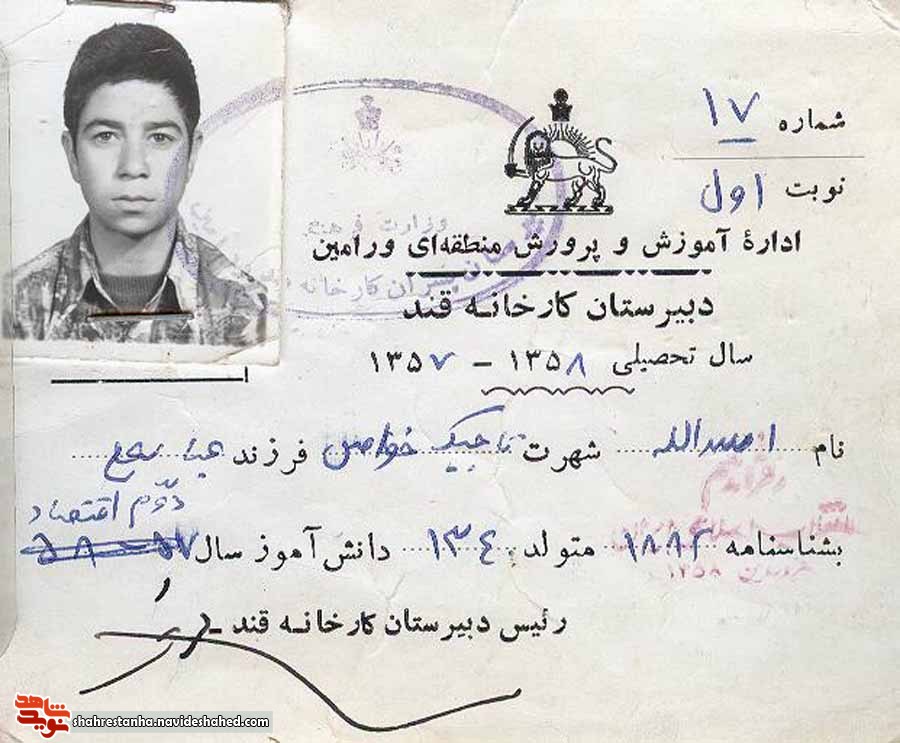 شماره ۱۷
نوبت اول
ادارهٔ آموزش و پرورش منطقه‌ای ورامین
دبیرستان کارخانه قند
سال تحصیلی ۱۳۵۸ - ۱۳۵۷
نام اسدالله شهرت تاجیک خواص فرزند
دوم اقتصاد
بشناسنامه ۱۸۸۲ متولد ۱۳۴۰ دانش‌آموز سال ۵۷ - ۵۸
رئیس دبیرستان کارخانه قند -
وزارت فرهنگ
پسران کارخانه
رفراندم
انقلاب اسلامی ایران
فروردین ۱۳۵۸
نوید شاهد
shahrestanha.navideshahed.com